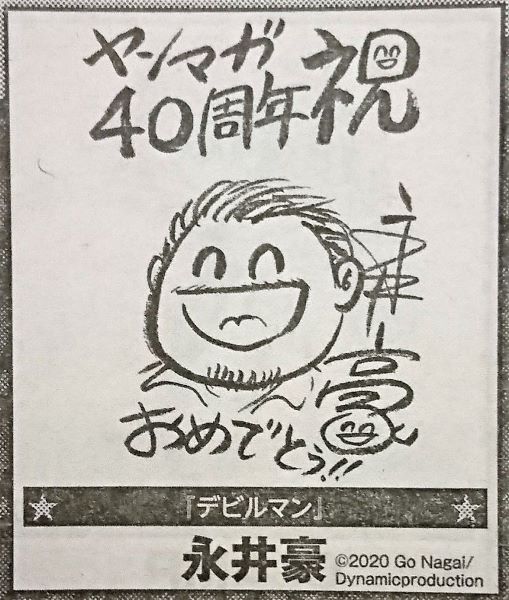 ヤンマガ
40周年祝
永井豪
おめでとう!!
『デビルマン』
永井豪
©2020 Go Nagai/
Dynamicproduction